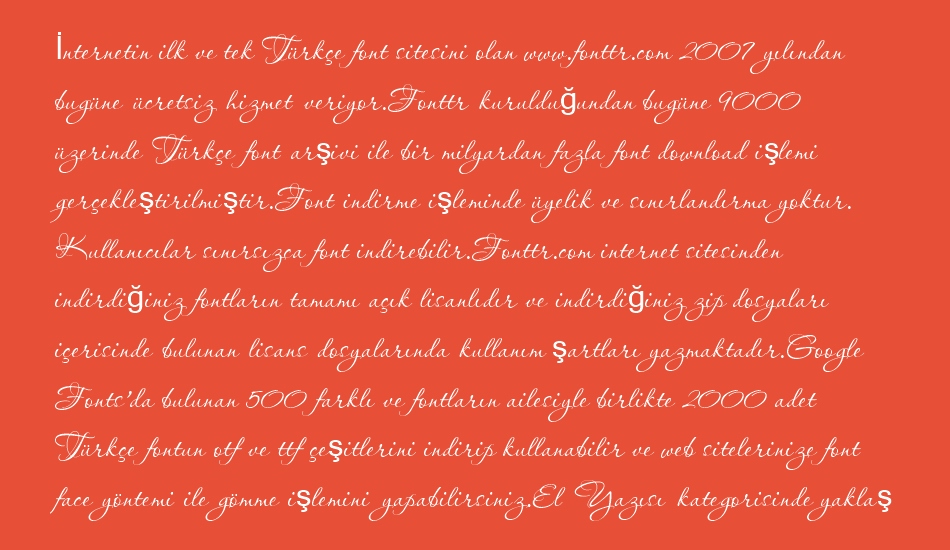 İnternetin ilk ve tek Türkçe font sitesini olan www.fonttr.com 2007 yılından
bugüne ücretsiz hizmet veriyor.Fonttr kurulduğundan bugüne 9000
üzerinde Türkçe font arşivi ile bir milyardan fazla font download işlemi
gerçekleştirilmiştir.Font indirme işleminde üyelik ve sınırlandırma yoktur.
Kullanıcılar sınırsızca font indirebilir.Fonttr.com internet sitesinden
indirdiğiniz fontların tamamı açık lisanlıdır ve indirdiğiniz zip dosyaları
içerisinde bulunan lisans dosyalarında kullanım şartları yazmaktadır.Google
Fonts'da bulunan 500 farklı ve fontların ailesiyle birlikte 2000 adet
Türkçe fontun otf ve ttf çeşitlerini indirip kullanabilir ve web sitelerinize font
face yöntemi ile gömme işlemini yapabilirsiniz.El Yazısı kategorisinde yaklaş